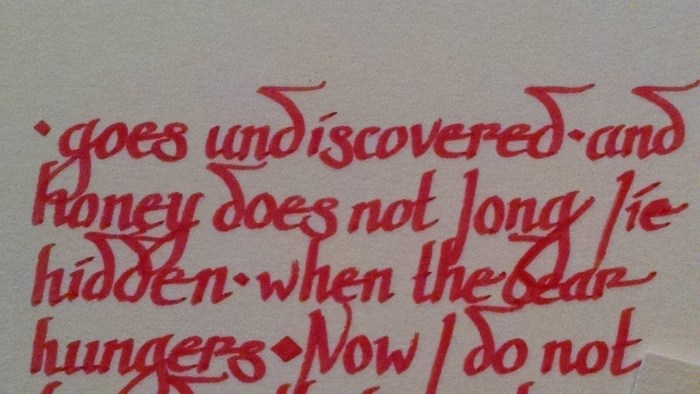 ·goes undiscovered·and
honey does not long lie
hidden·when the bear
hungers◆Now I do not